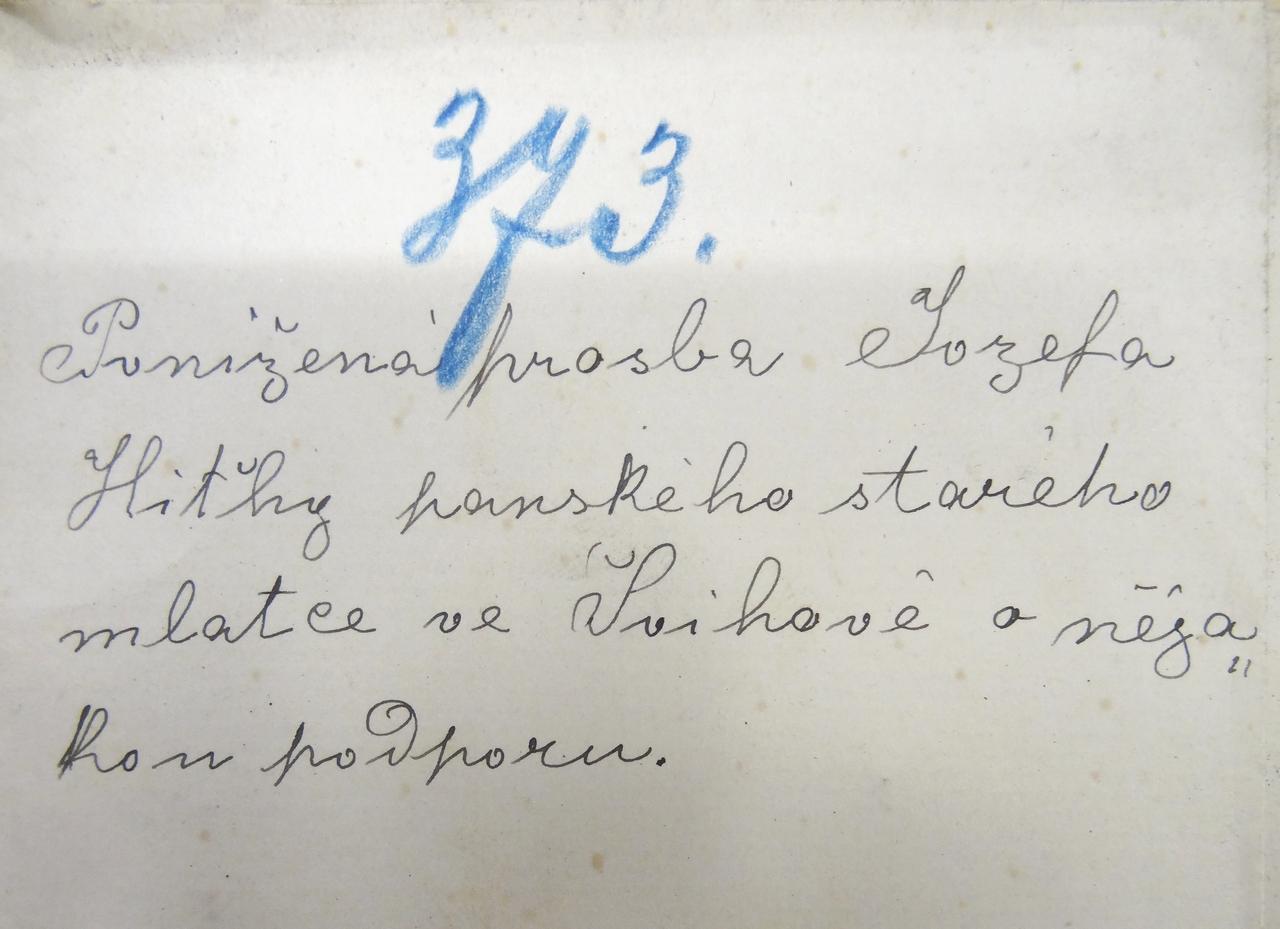 373.
Ponížená prosba Jozefa
Hitťhy panského starého
mlatce ve Švihově o něja„
kou podporu.